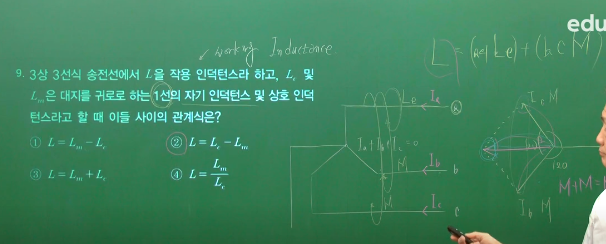 edu
working Inductance
9. 3상 3선식 송전선에서 L을 작용 인덕턴스라 하고, Lₑ 및
Lₘ은 대지를 귀로로 하는 1선의 자기 인덕턴스 및 상호 인덕
턴스라고 할 때 이들 사이의 관계식은?
① L = Lₘ - Lₑ
② L = Lₑ - Lₘ
③ L = Lₘ + Lₑ
④ L = Lₘ / Lₑ
Le
Ia
ⓐ
Ia+Ib+Ic=0
M
Ib
b
M
Ic
c
Ic M
Ib M
120